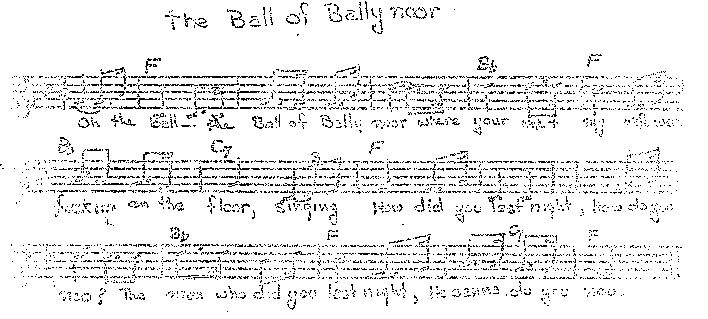 The Ball of Ballynoor
F Bb F
Oh the Ball - the Ball of Bally noor where your and my
Bb C7 F
on the floor, singing How did you last night, how do you
Bb F C7 F
now? The man who did you last night, He canna do you now.